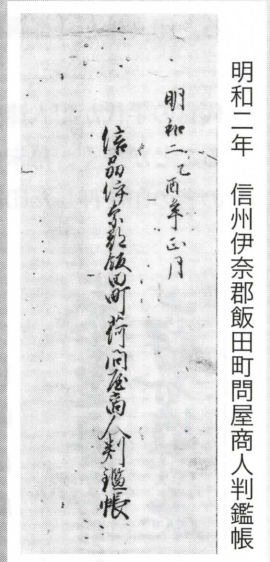 明和二年　信州伊奈郡飯田町問屋商人判鑑帳
明和二乙酉年正月
信州伊奈郡飯田町荷問屋商人判鑑帳